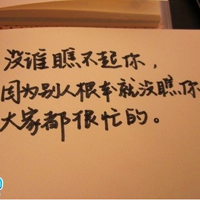 没谁瞧不起你，
因为别人根本就没瞧你
大家都很忙的。